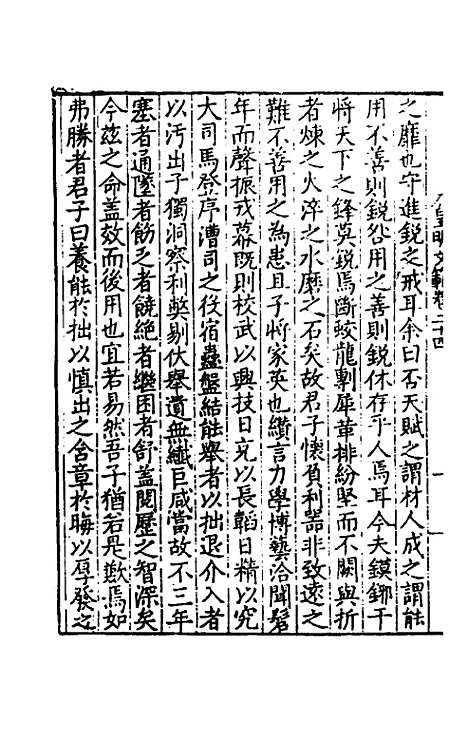 皇明文範卷二十四
之靡也守進銳之戒耳余曰否天賦之謂材人成之謂能
用不善則銳咎用之善則銳休存乎人焉耳今夫鏌鋣干
將天下之鋒莫銳焉斷蛟龍剸犀革排紛堅而不闕與折
者煉之火淬之水磨之石矣故君子懷負利器非致遠之
難不善用之為患且子將家英也纘言力學博藝洽聞髫
年而聲振戎幕既則校武以興技日充以長韜日精以究
大司馬登序漕司之役宿蠱盤結能舉者以拙退介入者
以汚出子獨洞察利獘剔伏舉遺無纖巨咸當故不三年
塞者通墜者飭乏者饒絕者繼困者舒蓋閱歷之智深矣
今茲之命盖效而後用也宜若易然吾子猶若是歉焉如
弗勝者君子曰養能於拙以慎出之含章於晦以厚發之